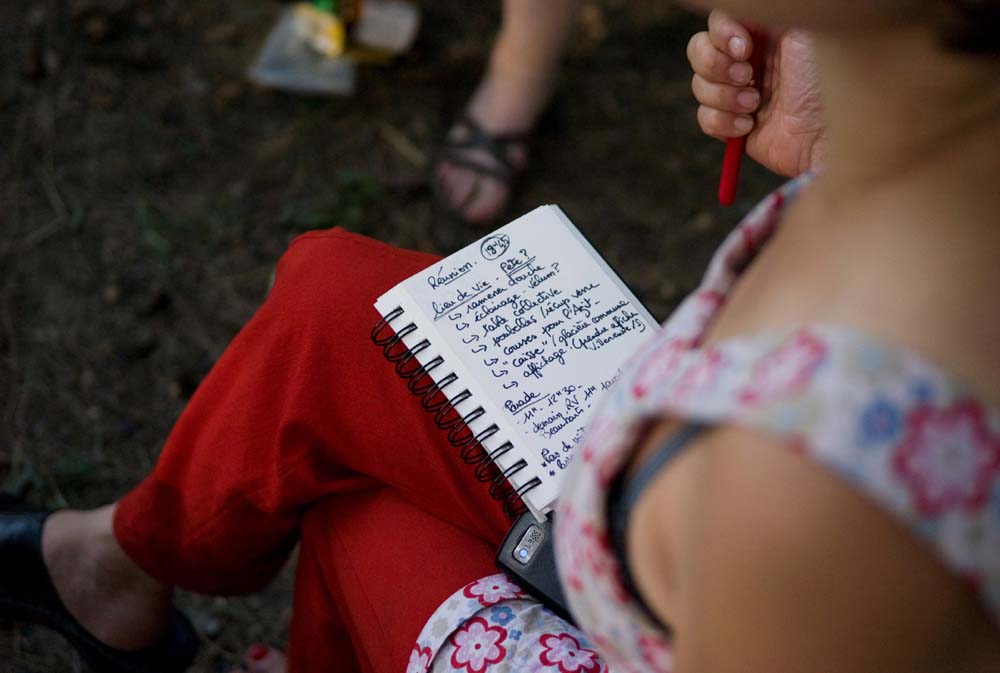 Réunion. 19H45
Lieu de Vie. Pete?
↳ ramener douche
↳ éclairage - Vélum?
↳ table collective
↳ poubelles / récup verre
↳ courses pour l'Agit-
↳ "caisse" / glacière commune
↳ affichage. (prendre affiche
Parade
- 11H - 12H30 -
- demain. RV 11H
* Pas de
*